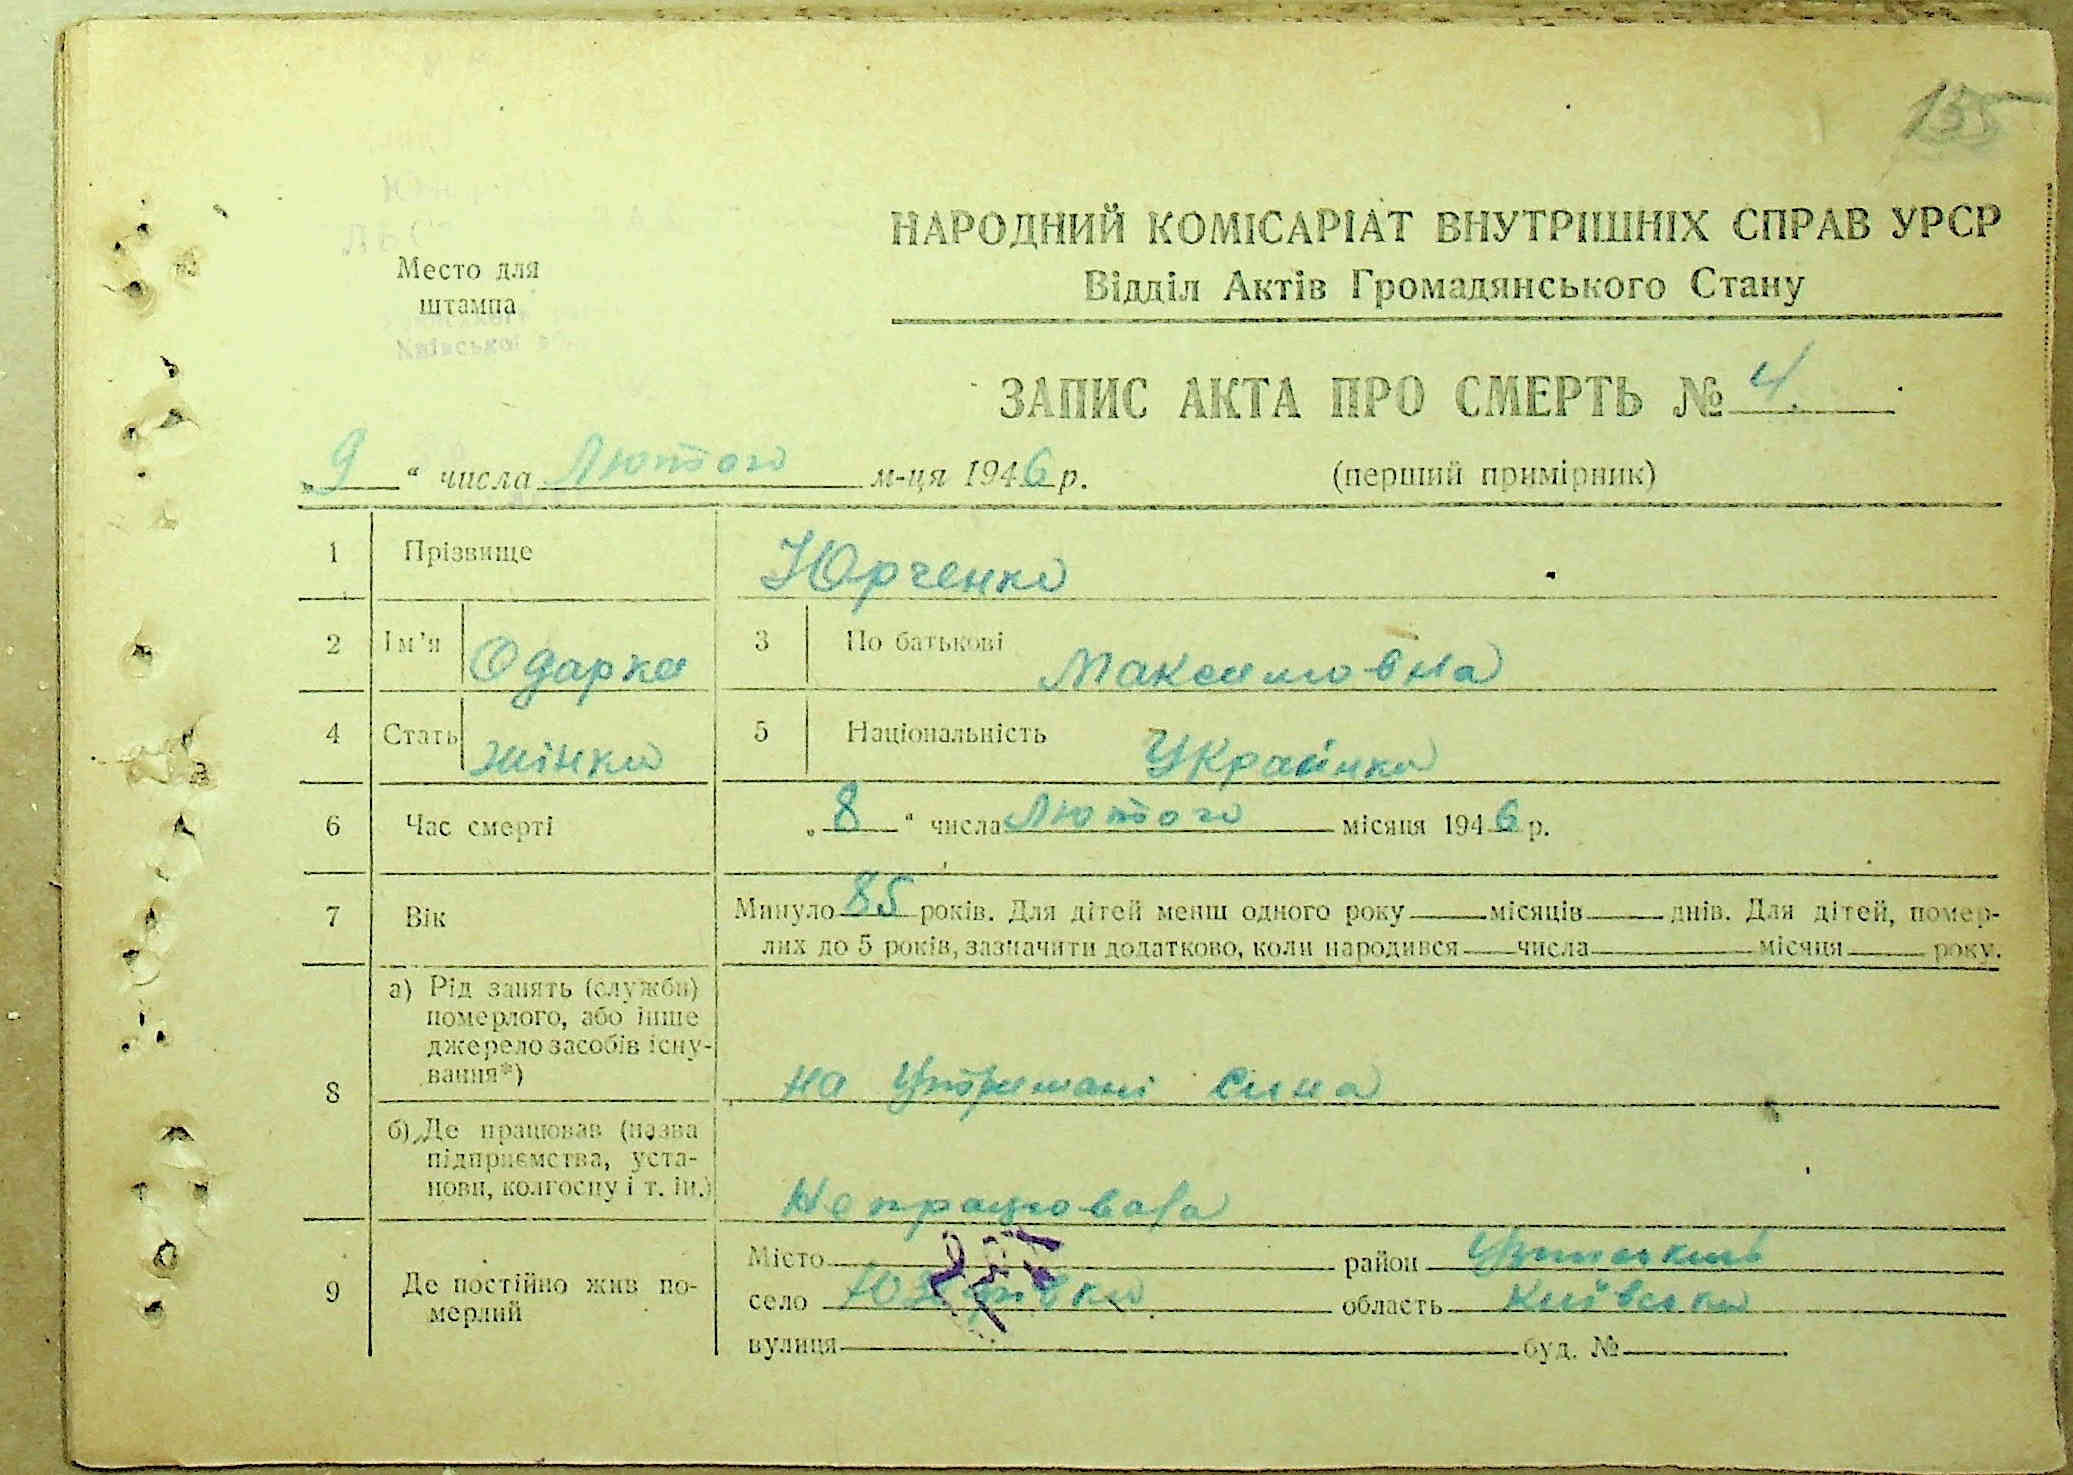 155
НАРОДНИЙ КОМІСАРІАТ ВНУТРІШНІХ СПРАВ УРСР
Відділ Актів Громадянського Стану
Место для
штампа
Київської
ЗАПИС АКТА ПРО СМЕРТЬ № 4.
„ 9 “ числа Лютого м-ця 1946 р. (перший примірник)
1 Прізвище Юрченко
2 Ім'я Одарка 3 По батькові Максимовна
4 Стать жінка 5 Національність Українка
6 Час смерті „ 8 “ числа Лютого місяця 1946 р.
7 Вік Минуло 85 років. Для дітей менш одного року місяців днів. Для дітей, помер-
лих до 5 років, зазначити додатково, коли народився числа місяця року.
8 а) Рід занять (служби)
померлого, або інше
джерело засобів існу-
вання*)
на утримані сина
б) Де працював (назва
підприємства, уста-
нови, колгоспу і т. ін.)
Не працювала
9 Де постійно жив по-
мерлий
Місто район Уманський
село Юрківка область Київська
вулиця буд. №